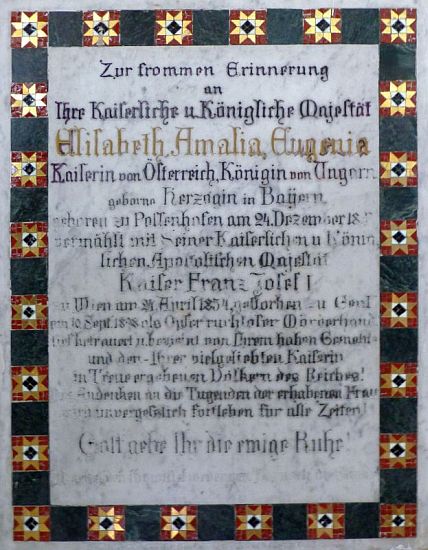 Zur frommen Erinnerung
an
Ihre Kaiserliche u. Königliche Majestät
Elisabeth, Amalia, Eugenia
Kaiserin von Österreich, Königin von Ungarn
geborne Herzogin in Bayern
geboren zu Possenhofen am 24. Dezember 18
vermählt mit Seiner Kaiserlichen u. König
lichen, Apostolischen Majestät
Kaiser Franz Josef I
zu Wien am 24. April 1854, gestorben zu Genf
am 10. Sept. 1898 als Opfer ruchloser Mörderhand
betrauert u. beweint von Ihrem hohen Gemahl
und den Ihrer vielgeliebten Kaiserin
in Treue ergebenen Völkern des Reiches!
Das Andenken an die Tugenden der erhabenen Frau
wird unvergesslich fortleben für alle Zeiten!
Gott gebe Ihr die ewige Ruhe!